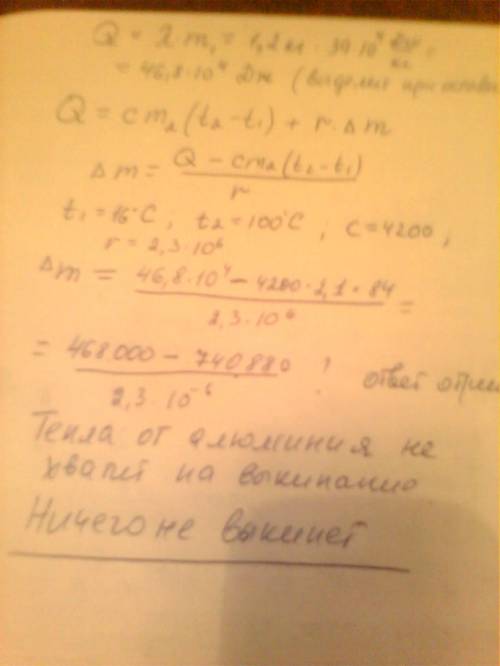 Q = λ·m₁ = 1,2кг · 39·10⁴ Дж/кг =
= 46,8·10⁴ Дж (выделит при
Q = cm₂(t₂-t₁) + r·Δm
Δm = (Q - cm₂(t₂-t₁))/r
t₁ = 16°C ; t₂ = 100°C ; c = 4200 ;
r = 2,3·10⁶
Δm = (46,8·10⁴ - 4200·2,1·84)/(2,3·10⁶) =
= (468000 - 740880)/(2,3·10⁻⁶) ! ответ
Тепла от алюминия не
хватит на выкипание
Ничего не выкипет